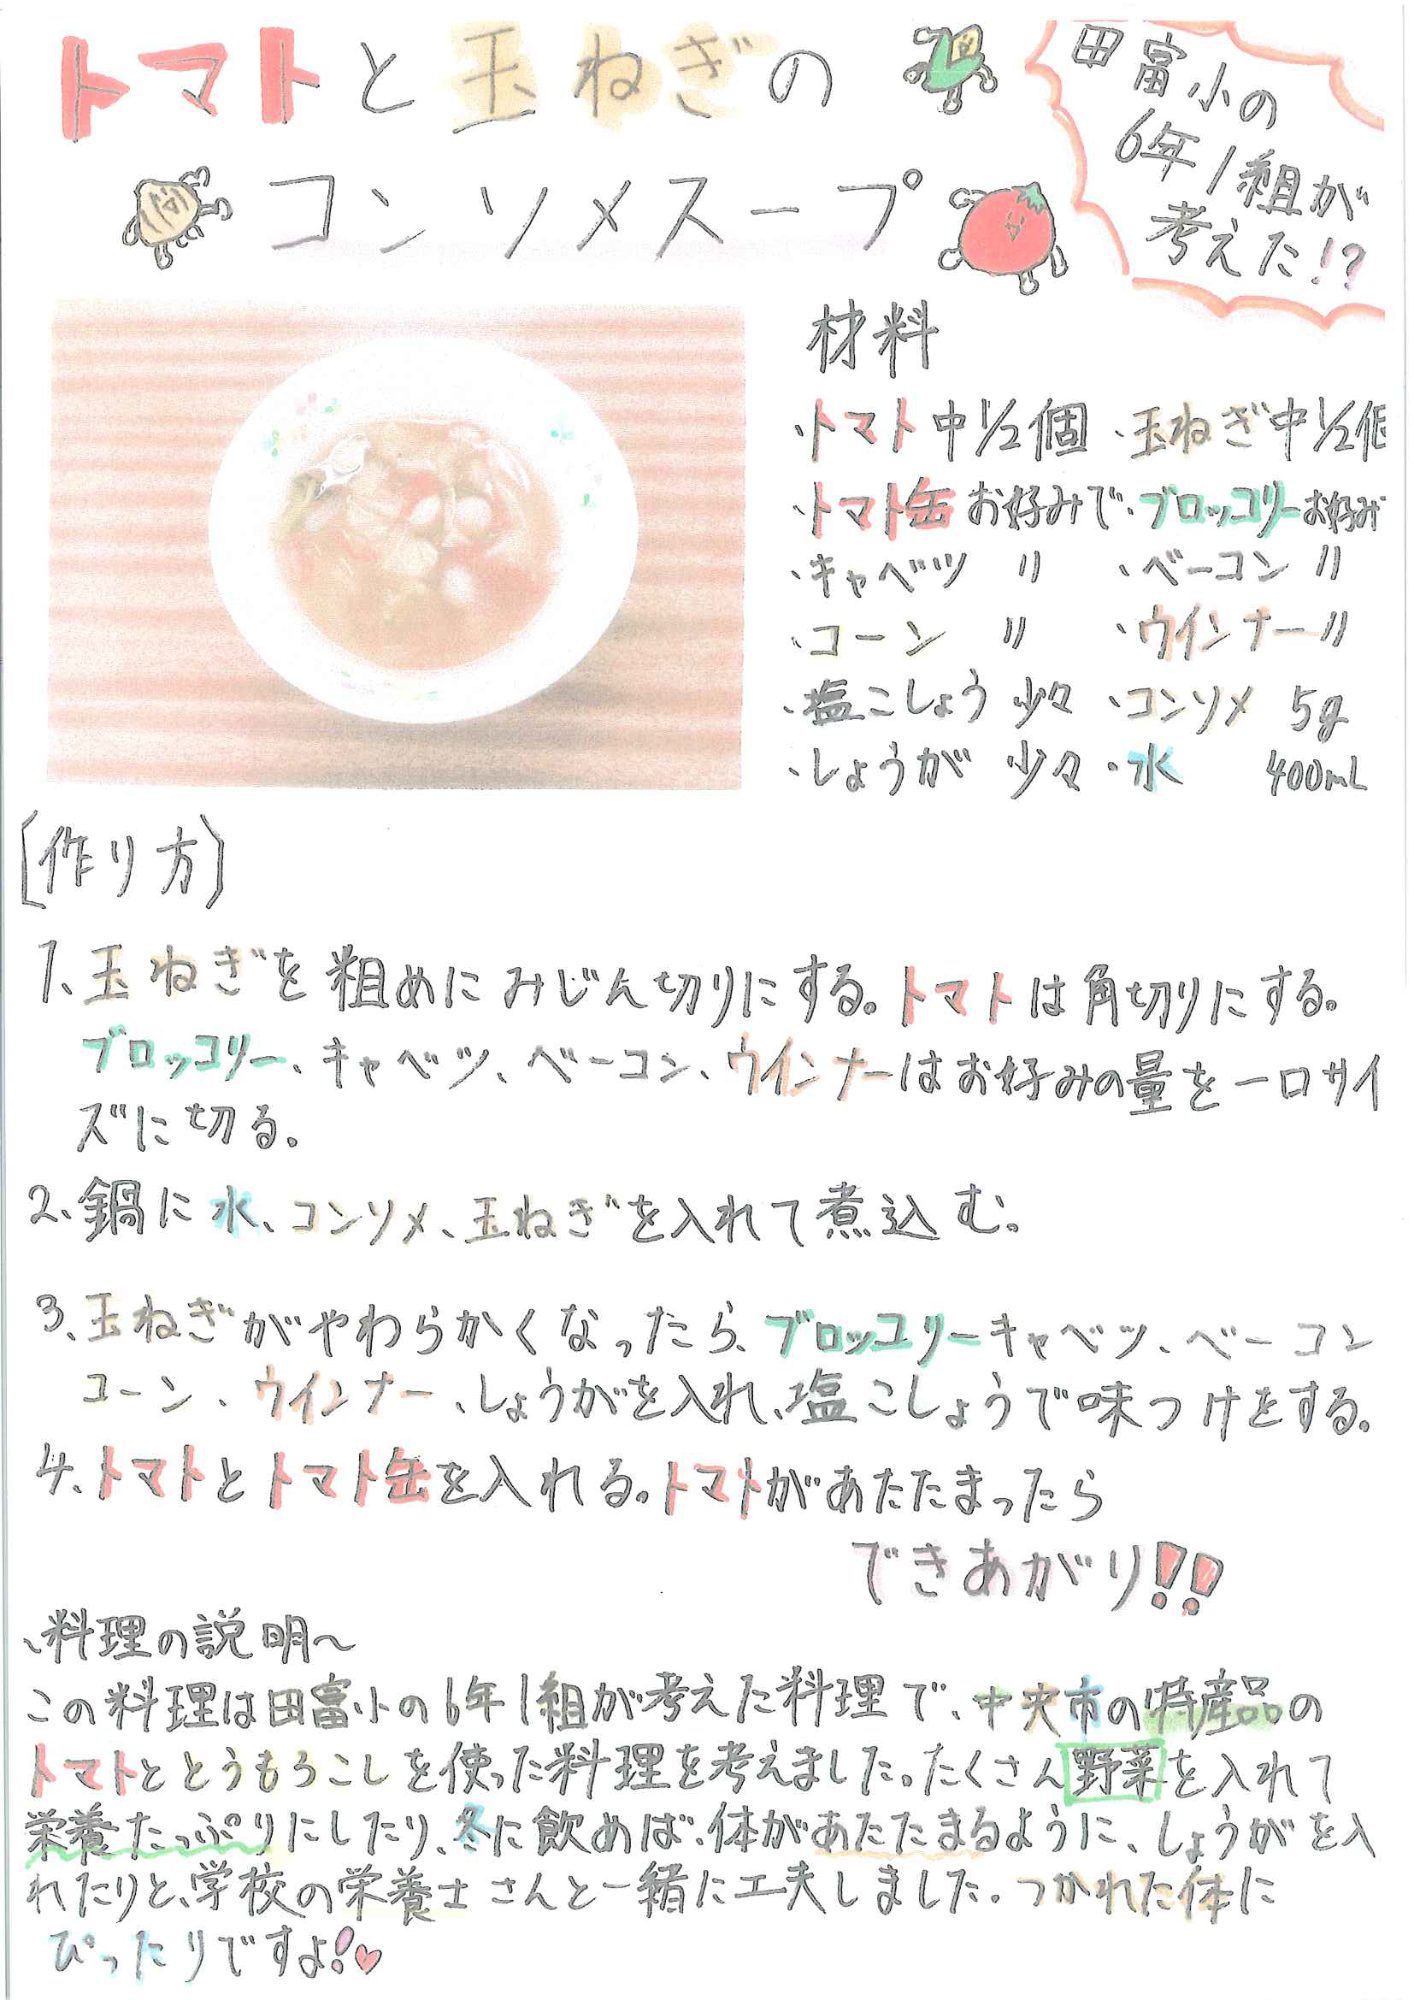 トマトと玉ねぎの
コンソメスープ
田富小の
6年1組が
考えた!?
材料
・トマト 中1/2個 ・玉ねぎ 中1/2個
・トマト缶 お好みで ・ブロッコリー お好み
・キャベツ 〃 ・ベーコン 〃
・コーン 〃 ・ウインナー 〃
・塩こしょう 少々 ・コンソメ 5g
・しょうが 少々 ・水 400mL
〔作り方〕
1、玉ねぎを粗めにみじん切りにする。トマトは角切りにする。
ブロッコリー、キャベツ、ベーコン、ウインナーはお好みの量を一口サイ
ズに切る。
2、鍋に水、コンソメ、玉ねぎを入れて煮込む。
3、玉ねぎがやわらかくなったら、ブロッコリーキャベツ、ベーコン
コーン、ウインナー、しょうがを入れ、塩こしょうで味つけをする。
4、トマトとトマト缶を入れる。トマトがあたたまったら
できあがり!!
、料理の説明～
この料理は田富小の6年1組が考えた料理で、中央市の特産品の
トマトととうもろこしを使った料理を考えました。たくさん野菜を入れて
栄養たっぷりにしたり、冬に飲めば、体があたたまるように、しょうがを入
れたりと、学校の栄養士さんと一緒に工夫しました。つかれた体に
ぴったりですよ!♥